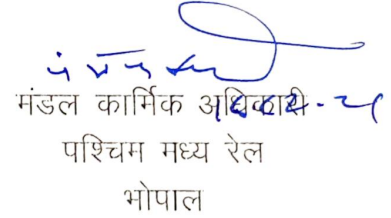 मंडल कार्मिक अधिकारी
पश्चिम मध्य रेल
भोपाल